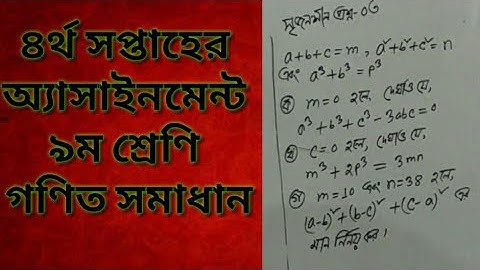 ৪র্থ সপ্তাহের
অ্যাসাইনমেন্ট
৯ম শ্রেণি
গণিত সমাধান
সৃজনশীল প্রশ্ন-০৩
a+b+c=m, a²+b²+c²=n
এবং a³+b³=p³
(ক) m=0 হলে, দেখাও যে,
a³+b³+c³-3abc=0
(খ) c=0 হলে, দেখাও যে,
m³+2p³=3mn
(গ) m=10 এবং n=38 হলে,
(a-b)²+(b-c)²+(c-a)² এর
মান নির্ণয় কর।